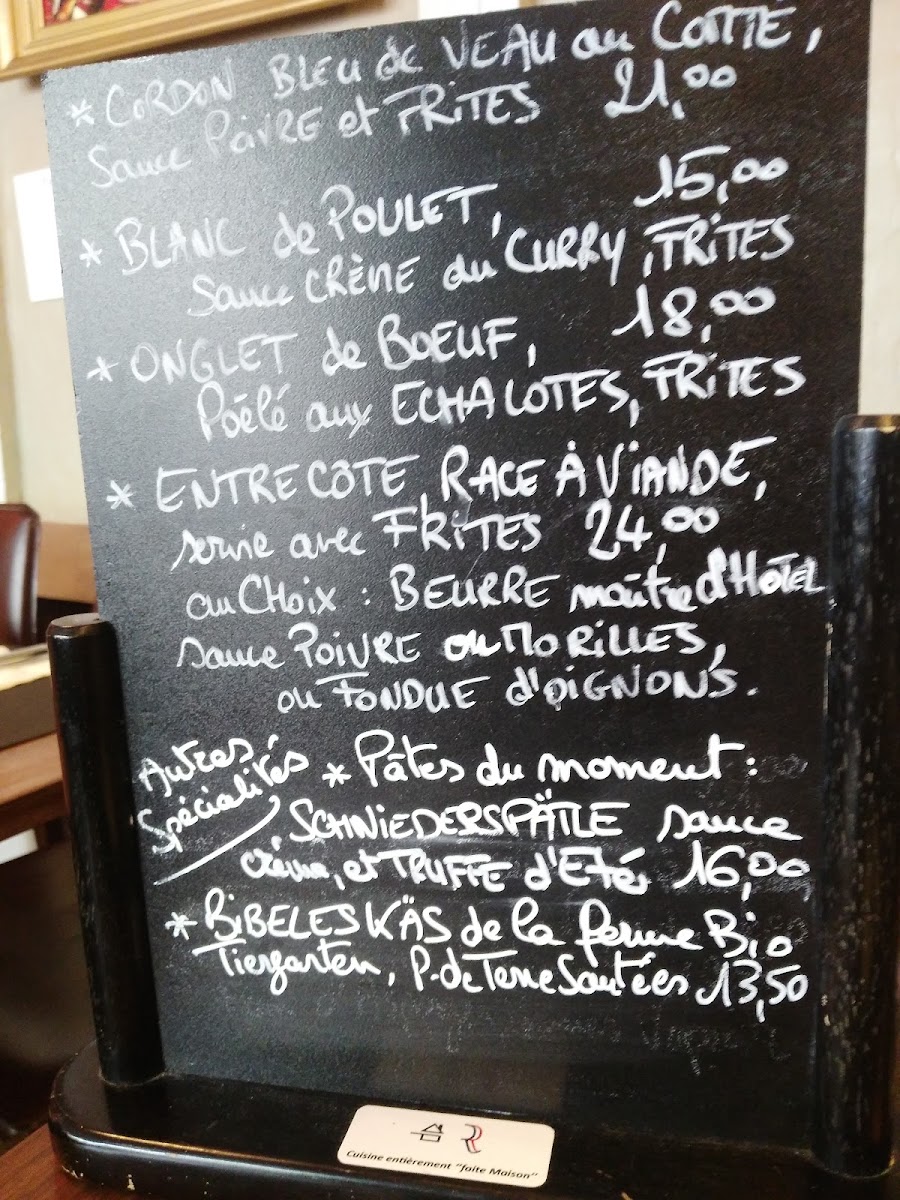 * CORDON BLEU de VEAU au COMTÉ,
Sauce POIVRE et FRITES 21,00
* BLANC de POULET, 15,00
Sauce CRÈME au CURRY, FRITES
* ONGLET de BOEUF, 18,00
Poêlé aux ECHALOTES, FRITES
* ENTRECÔTE, RACE À VIANDE,
servie avec FRITES 24,00
au CHOIX : BEURRE maître d'HOTEL
sauce POIVRE ou MORILLES,
ou FONDUE d'OIGNONS.
Autres
Spécialités
* Pâtes du moment :
SCHNIEDERSPÄTLE sauce
crème, et TRUFFE d'Eté, 16,00
* BIBELESKÄS de la ferme Bio
Tiergarten, P. de Terre Sautées 13,50
Cuisine entièrement "faite Maison"